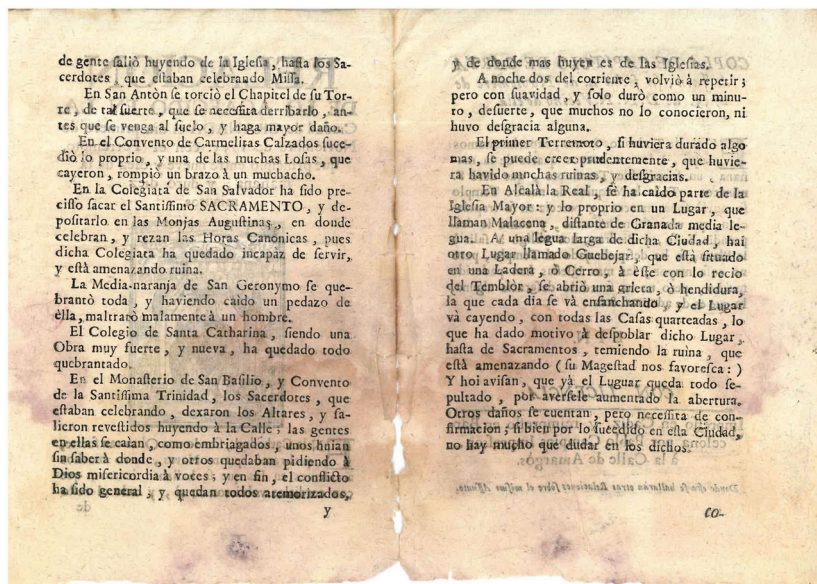 de gente saliò huyendo de la Iglesia, hasta los Sa-
cerdotes, que estaban celebrando Missa.
En San Antòn se torciò el Chapitel de su Tor-
re, de tal suerte, que se necessita derribarlo, an-
tes que se venga al suelo, y haga mayor daño.
En el Convento de Carmelitas Calzados suce-
diò lo proprio, y una de las muchas Losas, que
cayeron, rompiò un brazo à un muchacho.
En la Colegiata de San Salvador ha sido pre-
cisso sacar el Santissimo SACRAMENTO, y de-
positarlo en las Monjas Augustinas, en donde
celebran, y rezan las Horas Canonicas, pues
dicha Colegiata ha quedado incapaz de servir,
y està amenazando ruina.
La Media-naranja de San Geronymo se que-
brantò toda, y haviendo caido un pedazo de
èlla, maltratò malamente à un hombre.
El Colegio de Santa Catharina, siendo una
Obra muy fuerte, y nueva, ha quedado todo
quebrantado.
En el Monasterio de San Basilio, y Convento
de la Santissima Trinidad, los Sacerdotes, que
estaban celebrando, dexaron los Altares, y sa-
lieron revestidos huyendo à la Calle: las gentes
en ellas se caian, como embriagados, unos huian
sin saber à donde, y otros quedaban pidiendo à
Dios misericordia à voces; y en fin, el conflicto
ha sido general, y quedan todos atemorizados,
y
y de donde mas huyen es de las Iglesias.
A noche dos del corriente, volviò à repetir;
pero con suavidad, y solo durò como un minu-
to, desuerte, que muchos no lo conocieron, ni
huvo desgracia alguna.
El primer Terremoto, si huviera durado algo
mas, se puede creer prudentemente, que huvie-
ra havido muchas ruinas, y desgracias.
En Alcalà la Real, se ha caido parte de la
Iglesia Mayor: y lo proprio en un Lugar, que
llaman Malacena, distante de Granada media le-
gua. A una legua larga de dicha Ciudad, hai
otro Lugar llamado Guebejar, que està situado
en una Ladera, ò Cerro, à èste con lo recio
del Temblòr, se abriò una grieta, ò hendidura,
la que cada dia se và ensanchando, y el Lugar
và cayendo, con todas las Casas quarteadas, lo
que ha dado motivo à despoblar dicho Lugar,
hasta de Sacramentos, temiendo la ruina, que
està amenazando (su Magestad nos favoresca:)
Y hoi avisan, que yà el Luguar queda todo se-
pultado, por aversele aumentado la abertura.
Otros daños se cuentan, pero necessita de con-
firmacion; si bien por lo sucedido en esta Ciudad,
no hay mucho que dudar en los dichos.
CO-